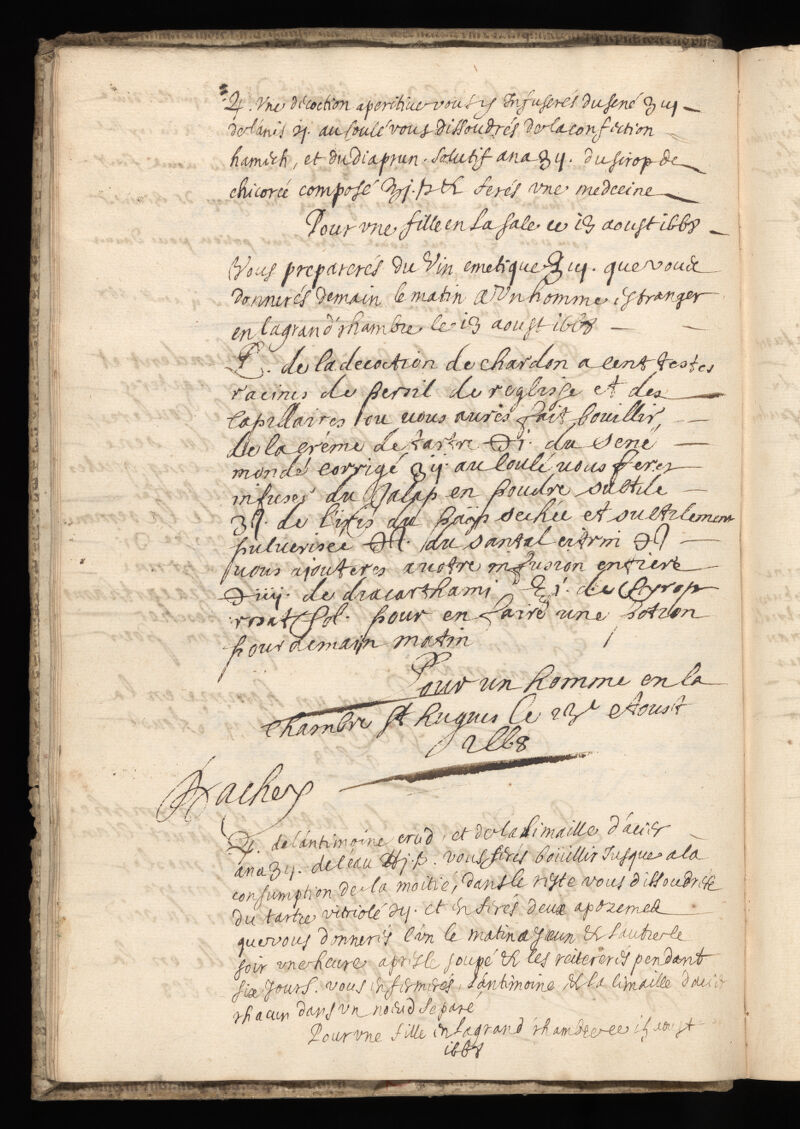 ♃. Une decoction aperitive vous y Infuserés du sené ʒiij
de l'anis ʒj. au coulé vous dissoudrés de la confection
hamech, et du diaprun. solutif ana ʒij. du sirop de
chicoreé composé ℥j. ß & ferés une medecine
Pour une fille en la sale ce 13 aoust 1668
Vous preparerés du Vin emetique ℥iij. que vous
donnerés demain le matin a Un homme estranger
en la grand chambre le 13 aoust 1668
♃. de la decoction de chardon a cent testes
racines de persil de reglisse et des
capillaires ou vous aurés fait bouillir
de la créme de tartre ℈i. du sené
mondé corrigé ʒij au coulé vous ferez
infuser du Jalap en poudre subtile
de l'iris du sechée et subtilement
pulverisée du santal citrin
vous ajouteres a votre infusion entiere
de diacarthami ʒi. de Syrop
rosat sol. pour en faire une potion
pour demain matin
Pour un homme en la
chambre St hugues le 13e Aoust
1668
♃. de l'antimoine crud, et de la limaille d'acier
ana ʒij. de l'eau ß. vous ferés boüillir Jusque a la
consumption de la moitie, dans le reste vous dissoudrés
du tartre vitriolé et en ferés deux apozemes
que vous donnerés l'un le matin a Jeun & l'autre le
soir une heure aprés le soupé & les reitererés pendant
six Jours. vous enfermerés l'antimoine & la limaille d'acier
chacun dans un noeud separé
Pour une fille en la grand chambre ce 13 aoust
1668